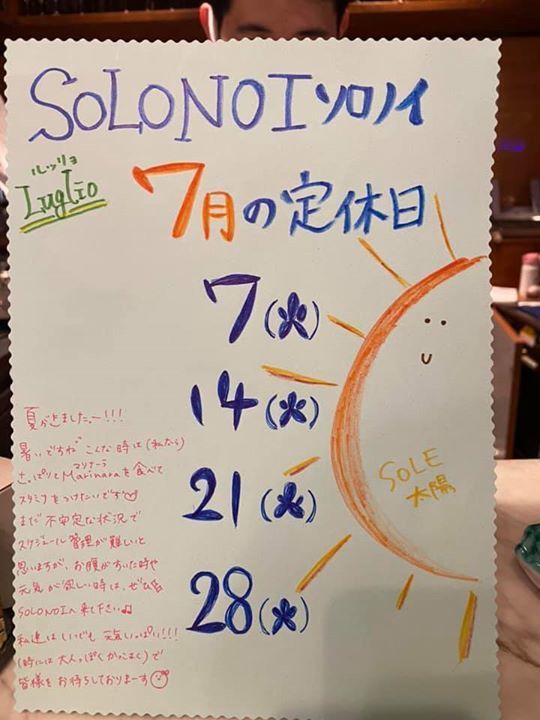 SOLONOI ソロノイ
ルッリョ
Luglio
7月の定休日
7(火)
14(火)
21(火)
28(火)
SOLE
太陽
夏がきました〜!!!
暑いですね こんな時は(私なら)
さっぱりと Marinara を食べて
マリナーラ
スタミナをつけたいです
まだ不安定な状況で
スケジュール管理が難しいと
思いますが、お腹がすいた時や
元気が欲しい時は、ぜひ
SOLONOIへ来て下さい♫
私達はいつでも元気いっぱい!!!
(時には大人っぽくかっこよく)で
皆様をお待ちしておりまーす